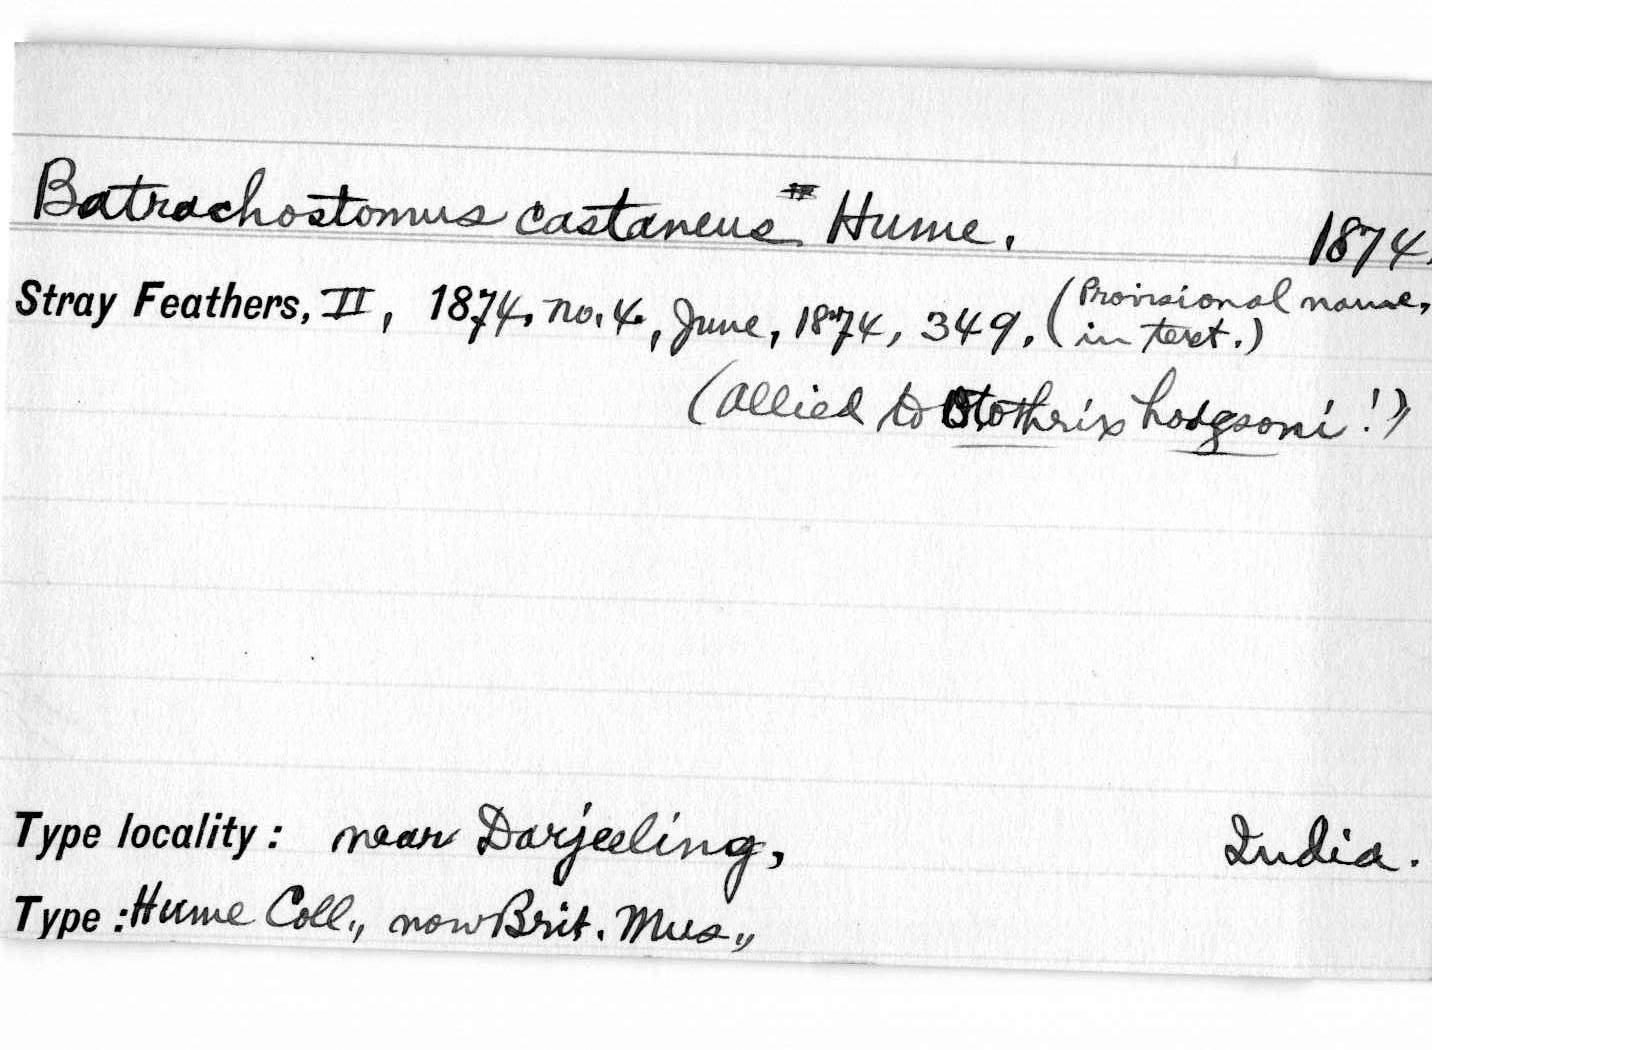 Batrachostomus castaneus Hume. 1874.
Stray Feathers, II, 1874, no. 4, June, 1874, 349. (Provisional name,
in text.)
(allied to Otothrix hodgsoni!)
Type locality: near Darjeeling, India.
Type: Hume Coll., now Brit. Mus.,